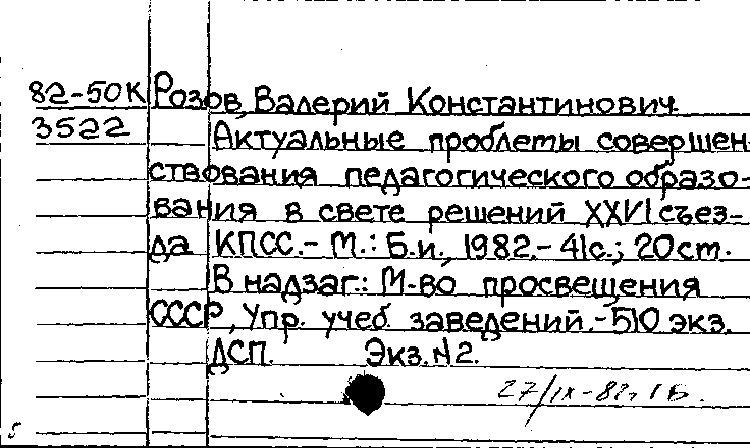 82-50К Розов, Валерий Константинович.
3522 Актуальные проблемы совершен
ствования педагогического образо-
вания в свете решений XXVI съез-
да КПСС.- М.: Б.и., 1982.- 41с.; 20 ст.
В надзаг.: М-во просвещения
СССР, Упр. учеб. заведений.- 510 экз.
ДСП. Экз. N2.
27/IX-82г.
5